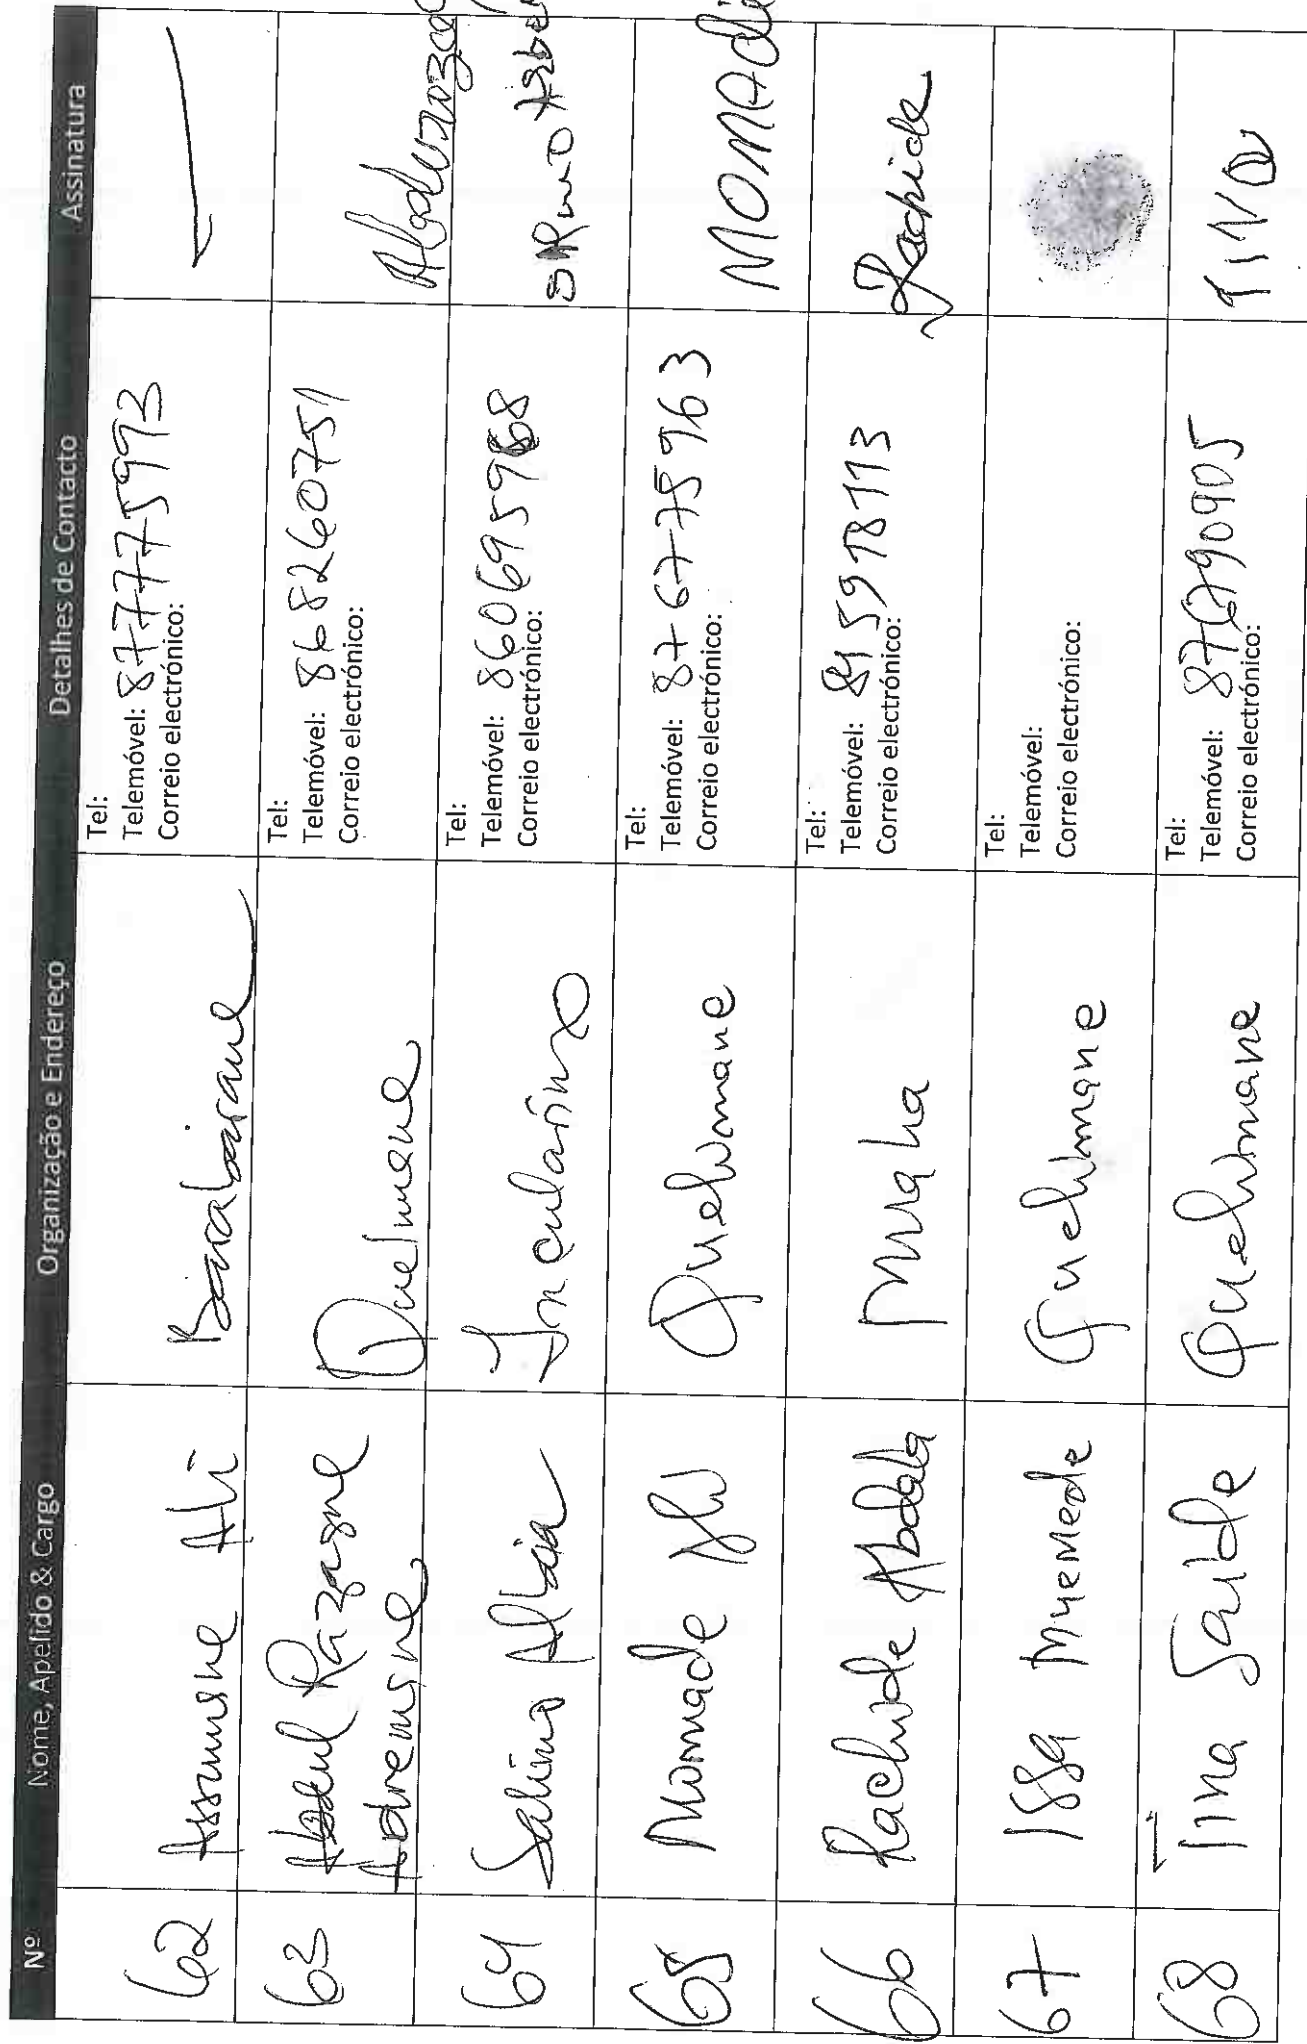 Nº Nome, Apelido & Cargo Organização e Endereço Detalhes de Contacto Assinatura
62 Assumane Ali Barabarane
Tel:
Telemóvel: 877775993
Correio electrónico:
63 Abdul Razaque
Adremane
Quelimane
Tel:
Telemóvel: 868260751
Correio electrónico:
64 Salimo Incularino
Tel:
Telemóvel: 860695968
Correio electrónico:
65 Momade Ali Quelimane
Tel:
Telemóvel: 876775963
Correio electrónico:
MOMADE
66 Rachide Abdala Muaha
Tel:
Telemóvel: 845978113
Correio electrónico:
Rachide
67 Issa Muemede Quelimane
Tel:
Telemóvel:
Correio electrónico:
68 Tina Saide Quelimane
Tel:
Telemóvel: 876790905
Correio electrónico:
TINA